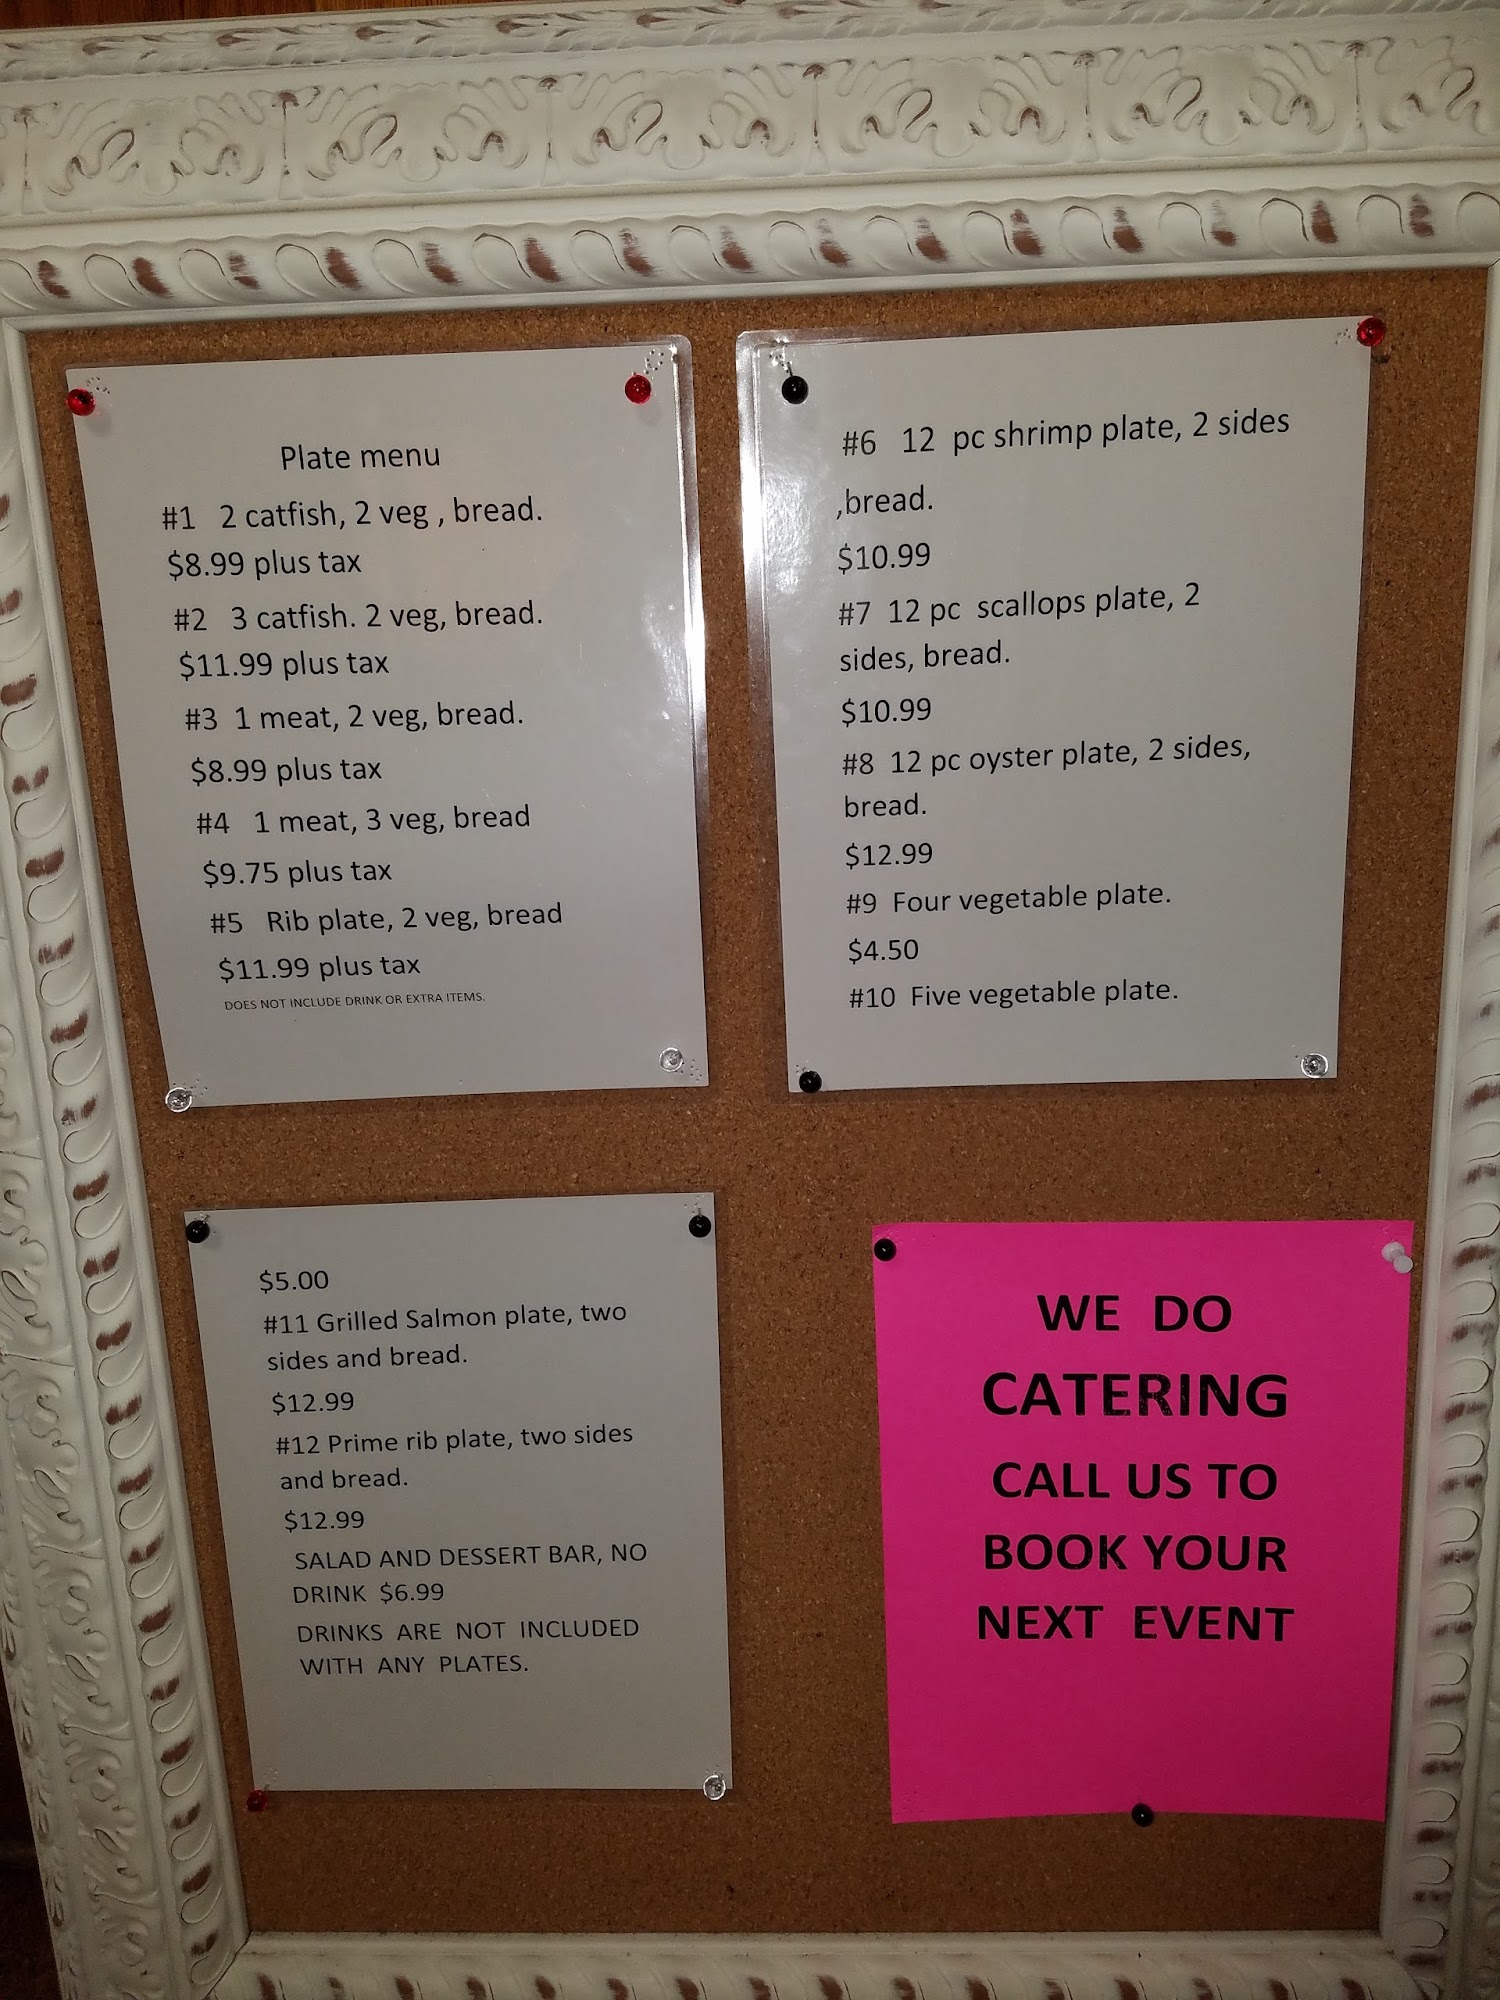 Plate menu
#1 2 catfish, 2 veg , bread.
$8.99 plus tax
#2 3 catfish. 2 veg, bread.
$11.99 plus tax
#3 1 meat, 2 veg, bread.
$8.99 plus tax
#4 1 meat, 3 veg, bread
$9.75 plus tax
#5 Rib plate, 2 veg, bread
$11.99 plus tax
DOES NOT INCLUDE DRINK OR EXTRA ITEMS.
#6 12 pc shrimp plate, 2 sides
,bread.
$10.99
#7 12 pc scallops plate, 2
sides, bread.
$10.99
#8 12 pc oyster plate, 2 sides,
bread.
$12.99
#9 Four vegetable plate.
$4.50
#10 Five vegetable plate.
$5.00
#11 Grilled Salmon plate, two
sides and bread.
$12.99
#12 Prime rib plate, two sides
and bread.
$12.99
SALAD AND DESSERT BAR, NO
DRINK $6.99
DRINKS ARE NOT INCLUDED
WITH ANY PLATES.
WE DO
CATERING
CALL US TO
BOOK YOUR
NEXT EVENT